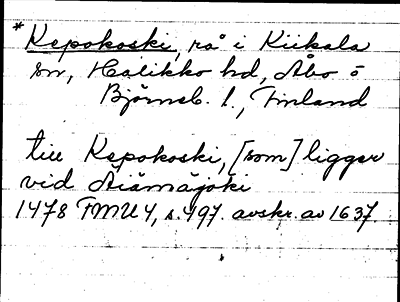 * Kepokoski, rå i Kiikala
sn, Halikko hd, Åbo o
Björneb. l., Finland
till Kepokoski, [som] ligger
vid Äiämäjoki
1478 FMU 4, s. 497. avskr. av 1637.